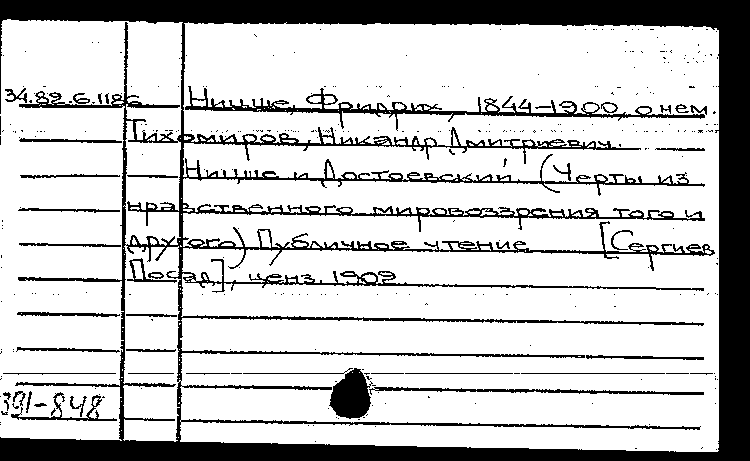 34.82.6.1186 Ницше, Фридрих, 1844-1900, о нем.
Тихомиров, Никандр Дмитриевич.
Ницше и Достоевский. (Черты из
нравственного мировоззрения того и
другого) Публичное чтение [Сергиев
Посад], ценз. 1902.
391-848